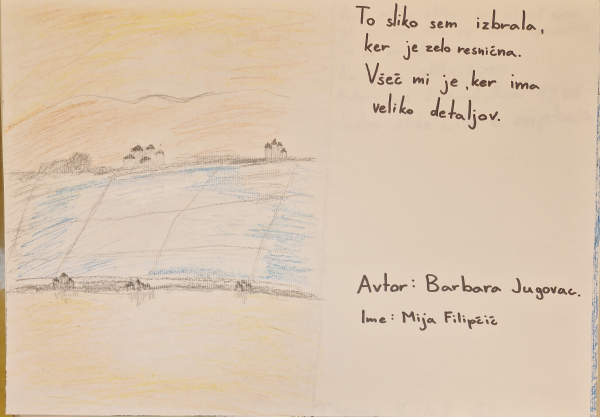 To sliko sem izbrala,
ker je zelo resnična.
Všeč mi je, ker ima
veliko detaljov.
Avtor: Barbara Jugovac.
Ime: Mija Filipčič